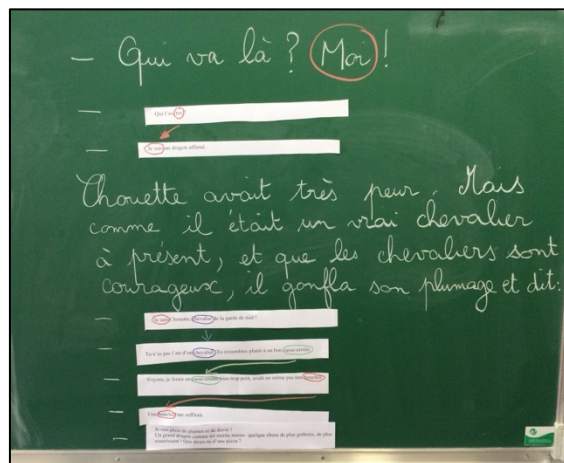 – Qui va là ? Moi !
– Qui t'es toi ?
– Je suis un dragon affamé.
Chouette avait très peur. Mais
comme il était un vrai chevalier
à présent, et que les chevaliers sont
courageux, il gonfla son plumage et dit :
– Je suis Chouette, chevalier de la garde de nuit !
– Tu n'as pas l'air d'un chevalier. Tu ressembles plutôt à un bon
– Voyons, je ferais un trop petit, avalé en même pas une bouchée.
– Une bouchée me suffirait.
– Je suis plein de plumes et de duvet !
Un grand dragon comme toi mérite mieux : quelque chose de plus goûteux, de plus
nourrissant ! Que dirais-tu d'une pizza ?